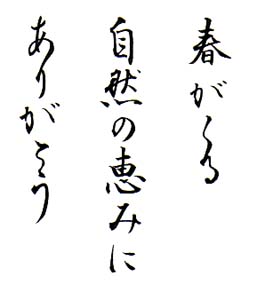 春がくる
自然の恵みに
ありがとう